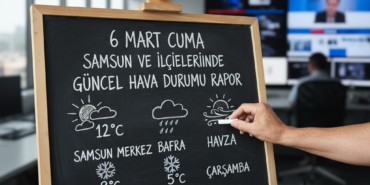 6 MART CUMA
SAMSUN VE İLÇİELERİINDE
GÜNCEL HAVA DURUMU RAPOR
12°C
SAMSUN MERKEZ BAFRA HAVZA
5°C ÇARŞAMBA